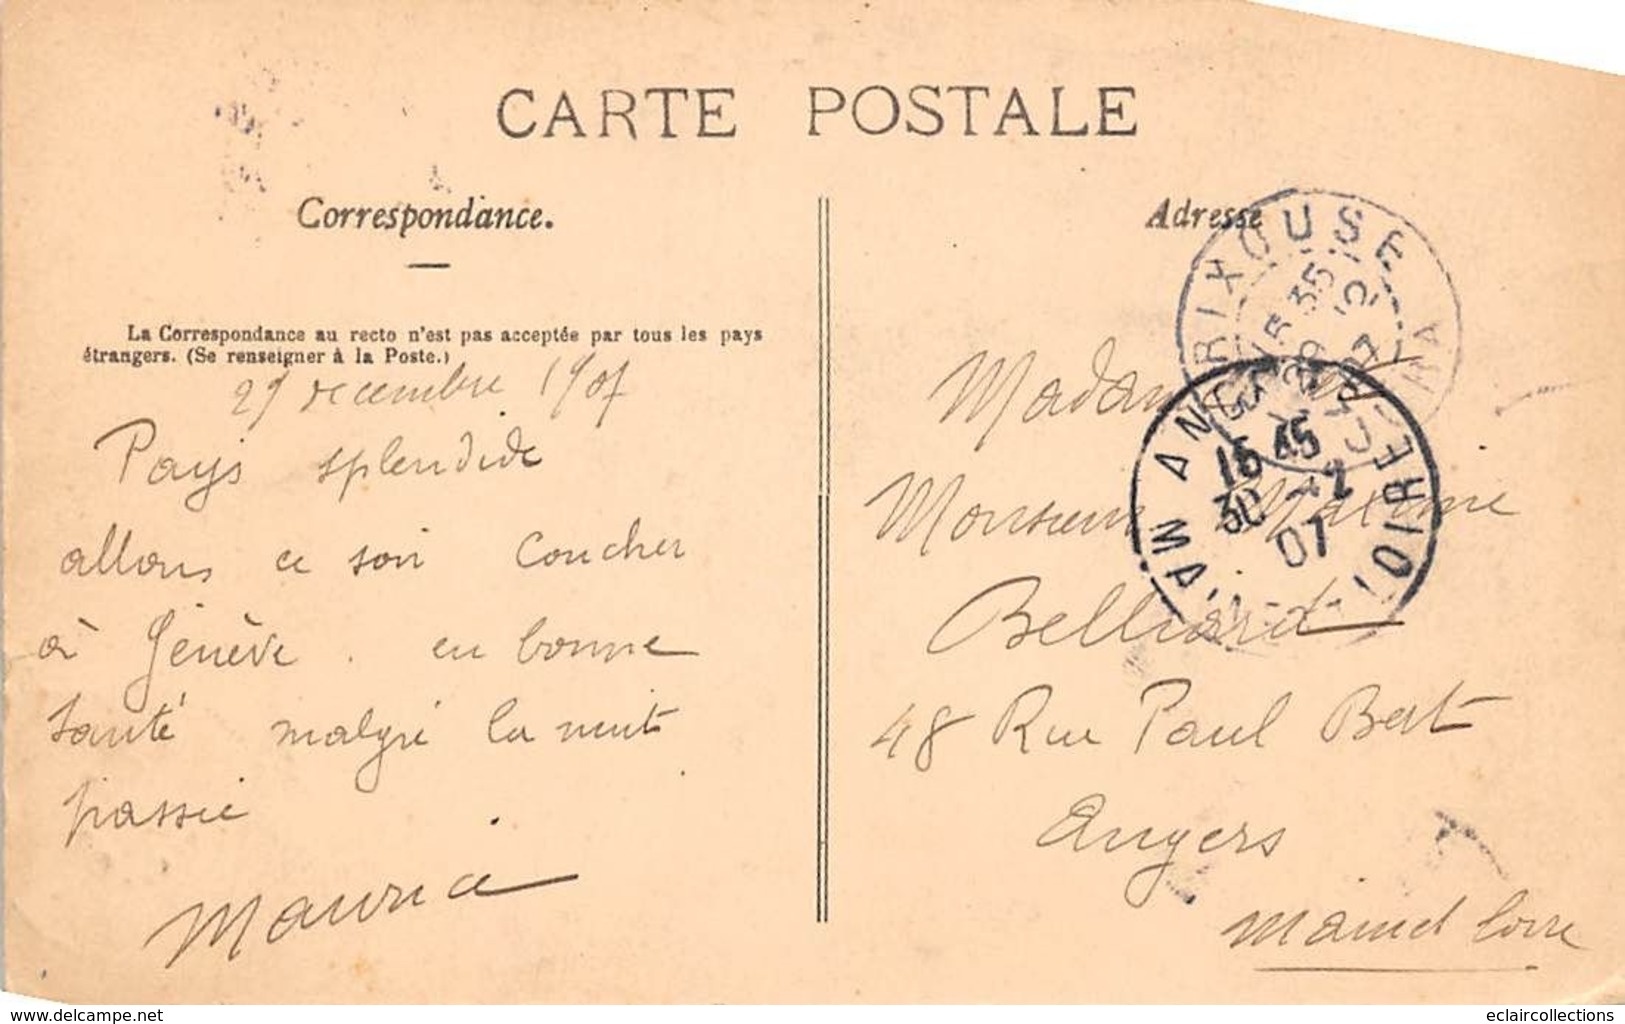 CARTE POSTALE
Correspondance.
La Correspondance au recto n'est pas acceptée par tous les pays
étrangers. (Se renseigner à la Poste.)
29 decembre 1907
Pays splendide
allons ce soir coucher
à Genève. en bonne
santé malgré la nuit
passée
Maurice
Adresse
RIXOUSE
35
07
ANGERS
MAINE
LOIRE
15 45
30 - 12
07
Madame et
Monsieur Maxime
Belliard
48 Rue Paul Bert
Angers
Maine et Loire
www.delcampe.net
eclaircollections